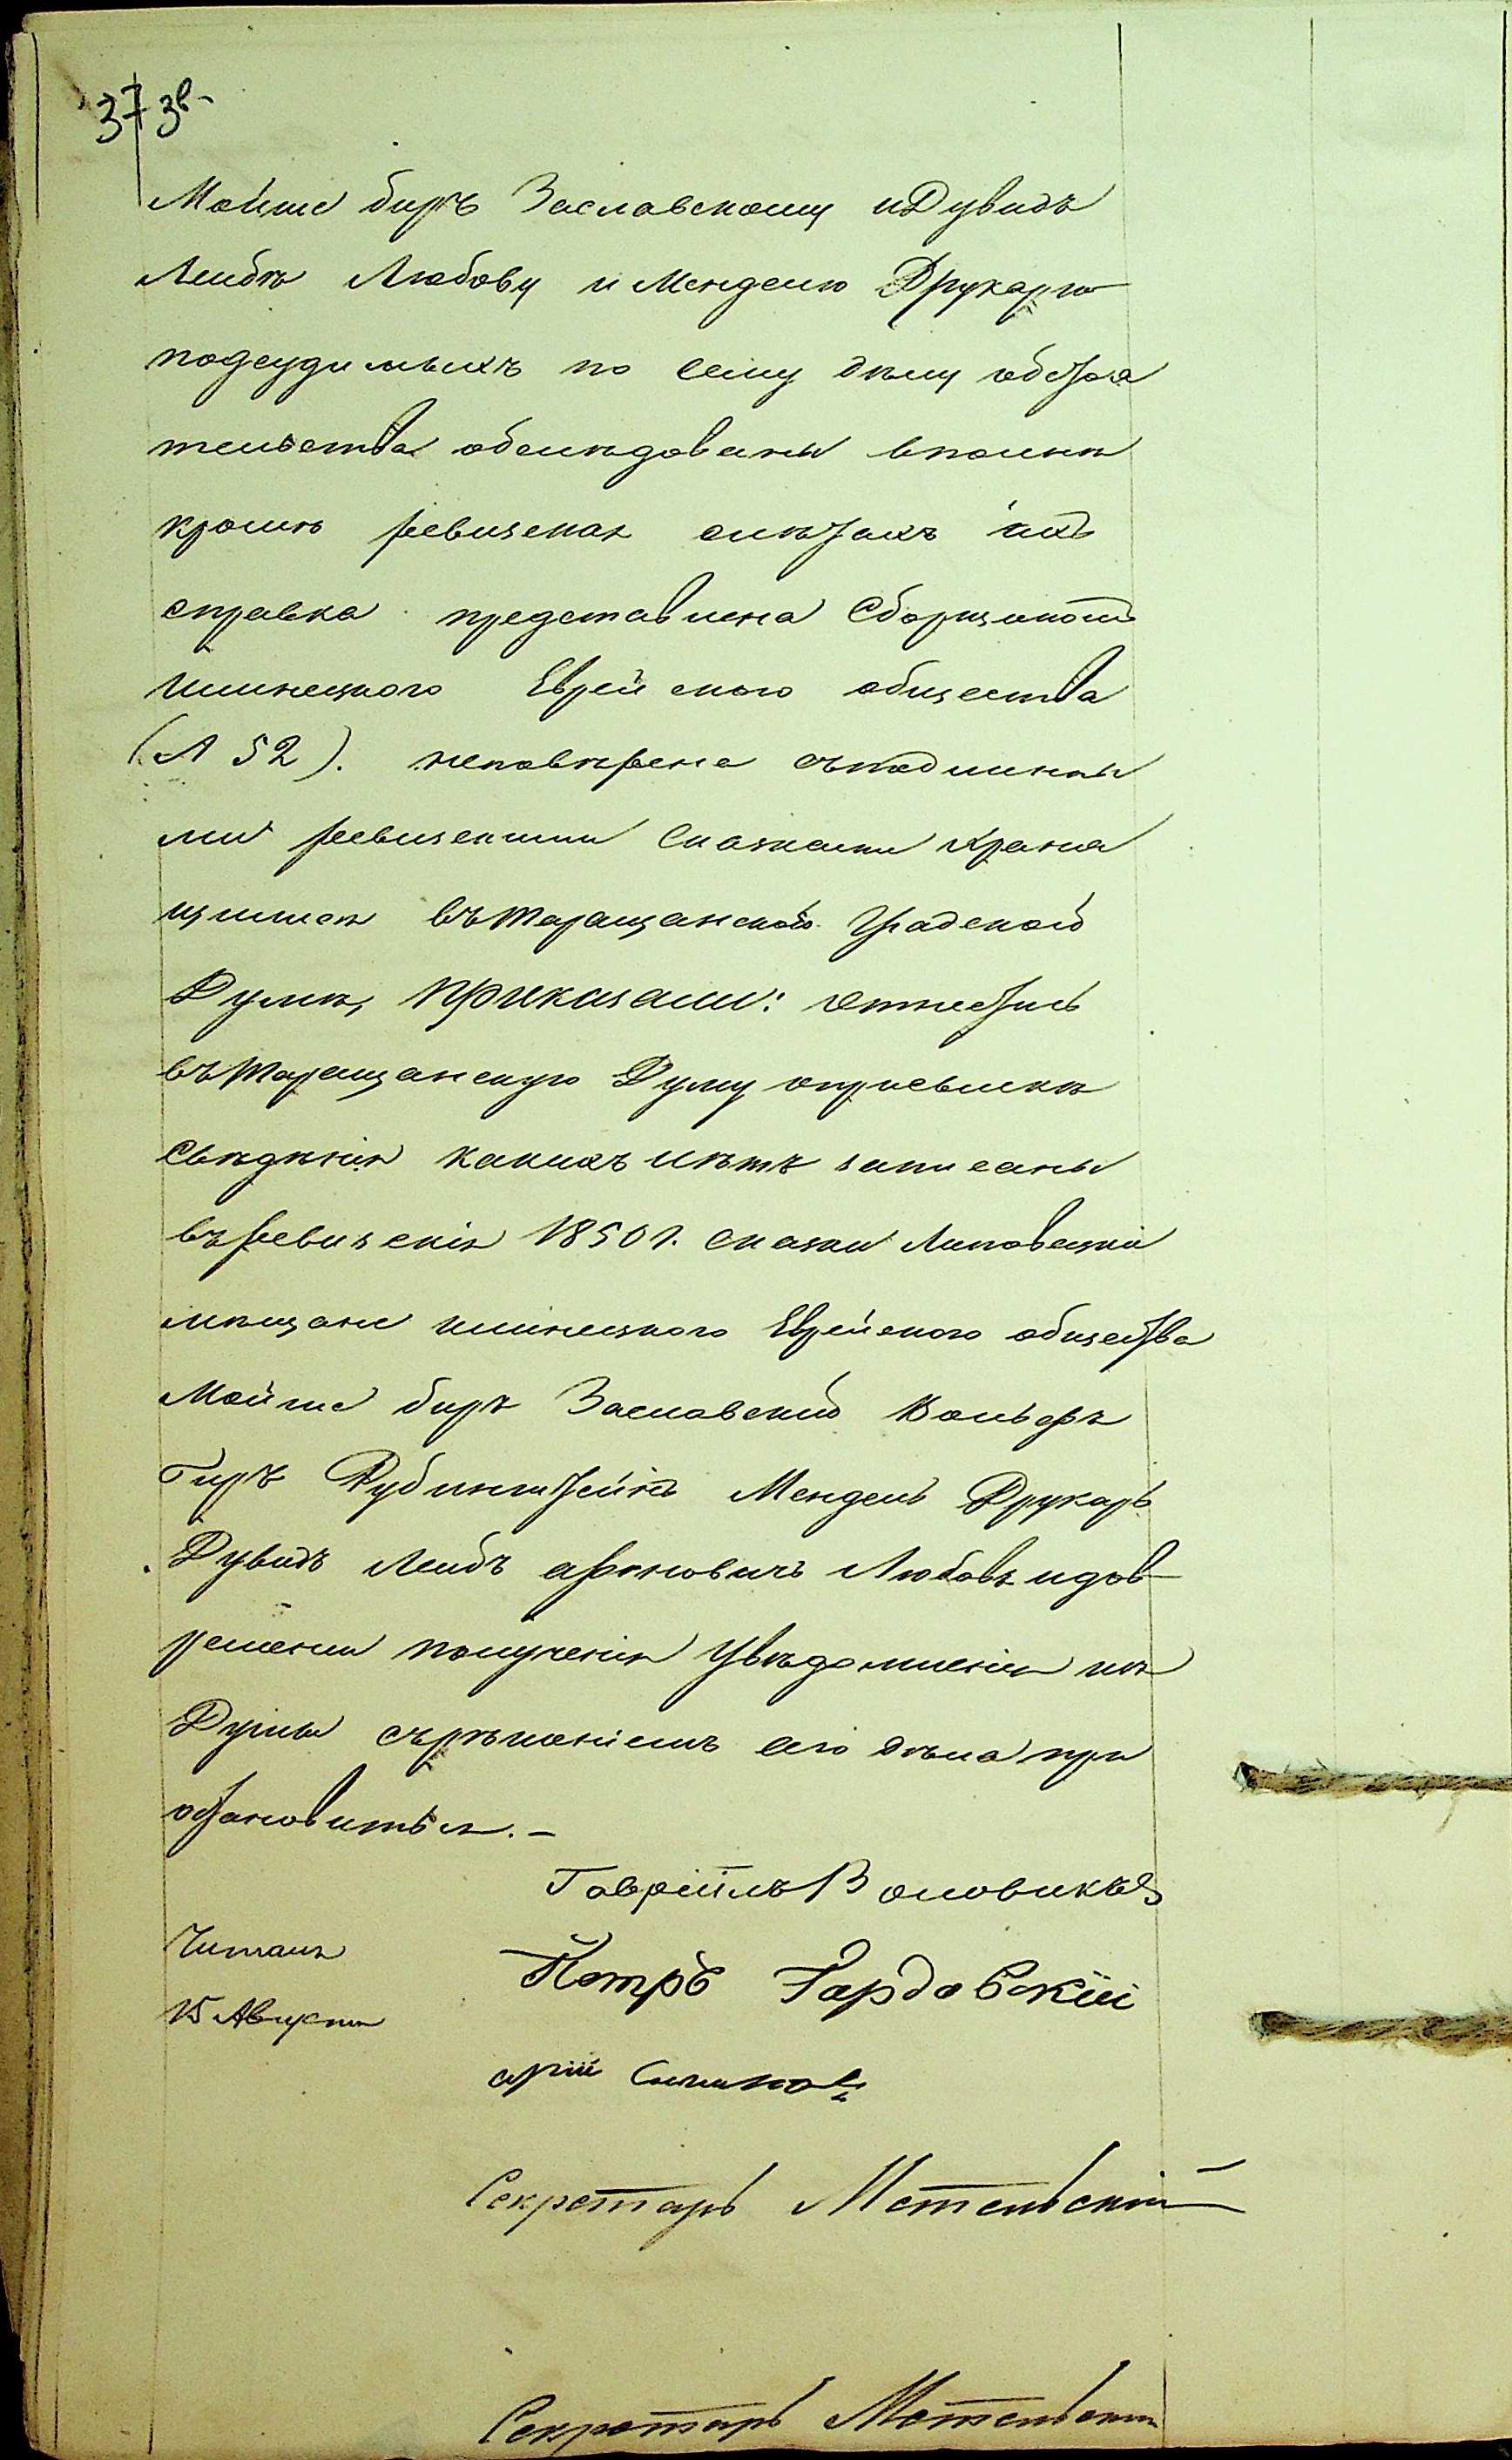 373в.
Мойше беръ Заславскому и Дувидъ
Лейбѣ Любову и Менделю Друкарю
подсудимыхъ по сему дѣлу обстоя
тельства обслѣдованы вполнѣ
кромѣ ревизскихъ лѣтахъ ихъ
справка представлена Сборщикомъ
Илинецкого Еврейского общества
(Л 52). неповѣрена съ подлинны
ми ревизскими сказками храня
щимися въ Таращанской Градской
Думѣ, Приказали: отнестись
въ Таращанскую Думу о присылкѣ
свѣдѣнія какихъ лѣтъ записаны
въ ревизскія 1850 г. сказки Липовецкіе
мѣщане Илинецкого Еврейского общества
Мойше беръ Заславский Вольфъ
Геръ Рубинштейнъ Мендель Друкарь
Дувидъ Лейбъ Ароновичъ Любовъ и до в
ремени полученія увѣдомленія изъ
Думы съ рѣшеніемъ его дѣла прі
остановиться. –
Гавріилъ Воловиковъ
Читалъ
Петръ Гардовскій
15 Августа
Секретарь Метельскій
Секретарь Метельскій